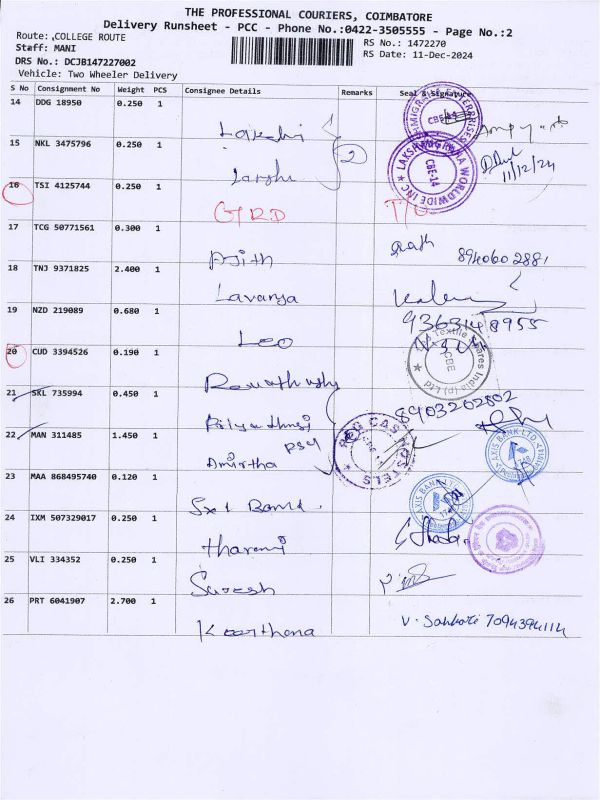 THE PROFESSIONAL COURIERS, COIMBATORE
Delivery Runsheet - PCC - Phone No.:0422-3505555 - Page No.:2
Route: COLLEGE ROUTE
Staff: MANI
DRS No.: DCJB147227002
Vehicle: Two Wheeler Delivery
RS No.: 1472270
RS Date: 11-Dec-2024
S No Consignment No Weight PCS Consignee Details Remarks Seal & Signature
14 DDG 18950 0.250 1
15 NKL 3475796 0.250 1
2
11/12/24
LAKSHMIGRAHA WORLDWIDE INC
CBE-14
16 TSI 4125744 0.250 1
17 TCG 50771561 0.300 1
Ajith 8940602881
18 TNJ 9371825 2.400 1
Lavanya
19 NZD 219089 0.680 1
Leo
20 CUD 3394526 0.190 1
Textile Spares India (p) Ltd
CBE
21 SKL 735994 0.450 1
8903202802
22 MAN 311485 1.450 1
Amirtha PSG
PSG CAS HOSTELS
23 MAA 868495740 0.120 1
Bank
AXIS BANK LTD
AXIS BANK LTD
24 IXM 507329017 0.250 1
Tharani
25 VLI 334352 0.250 1
Suresh
26 PRT 6041907 2.700 1
Keerthana
7094394114